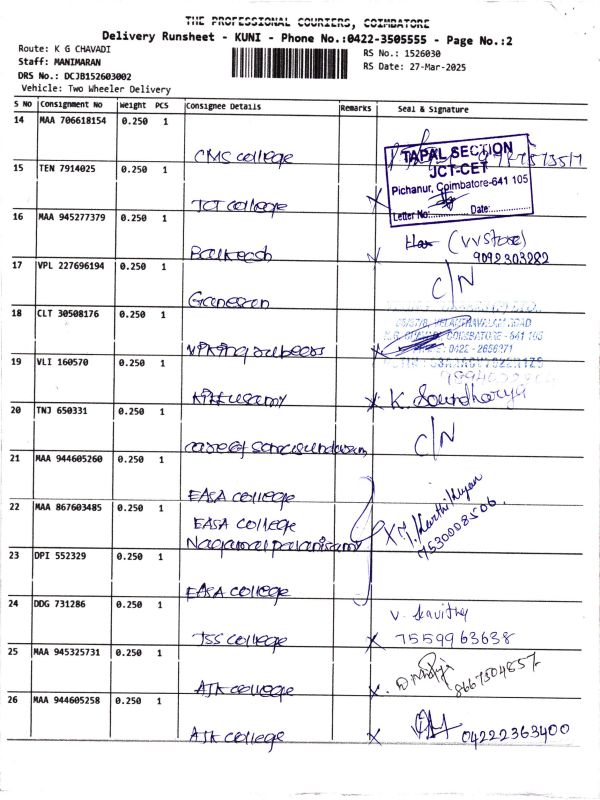 THE PROFESSIONAL COURIERS, COIMBATORE
Delivery Runsheet - KUNI - Phone No.:0422-3505555 - Page No.:2
Route: K G CHAVADI
RS No.: 1526030
Staff: MANIMARAN
RS Date: 27-Mar-2025
DRS No.: DCJB152603002
Vehicle: Two Wheeler Delivery
S NO Consignment No Weight PCS Consignee Details Remarks Seal & Signature
14 MAA 706618154 0.250 1
CMS college
TAPAL SECTION
JCT-CET
Pichanur, Coimbatore-641 105
Letter No:............... Date:...............
15 TEN 7914025 0.250 1
JCT college
16 MAA 945277379 0.250 1
(VV Store)
9092303282
17 VPL 227696194 0.250 1
Ganesan
C/N
18 CLT 30508176 0.250 1
19 VLI 160570 0.250 1
K. Soundharya
20 TNJ 650331 0.250 1
C/N
21 MAA 944605260 0.250 1
EASA college
22 MAA 867603485 0.250 1
EASA college
Nagamalpalanisamy
7530008506
23 DPI 552329 0.250 1
EASA college
24 DDG 731286 0.250 1
V. Kavitha
JSS college
7559963638
25 MAA 945325731 0.250 1
AJK college
8667304857
26 MAA 944605258 0.250 1
AJK college
04222363400